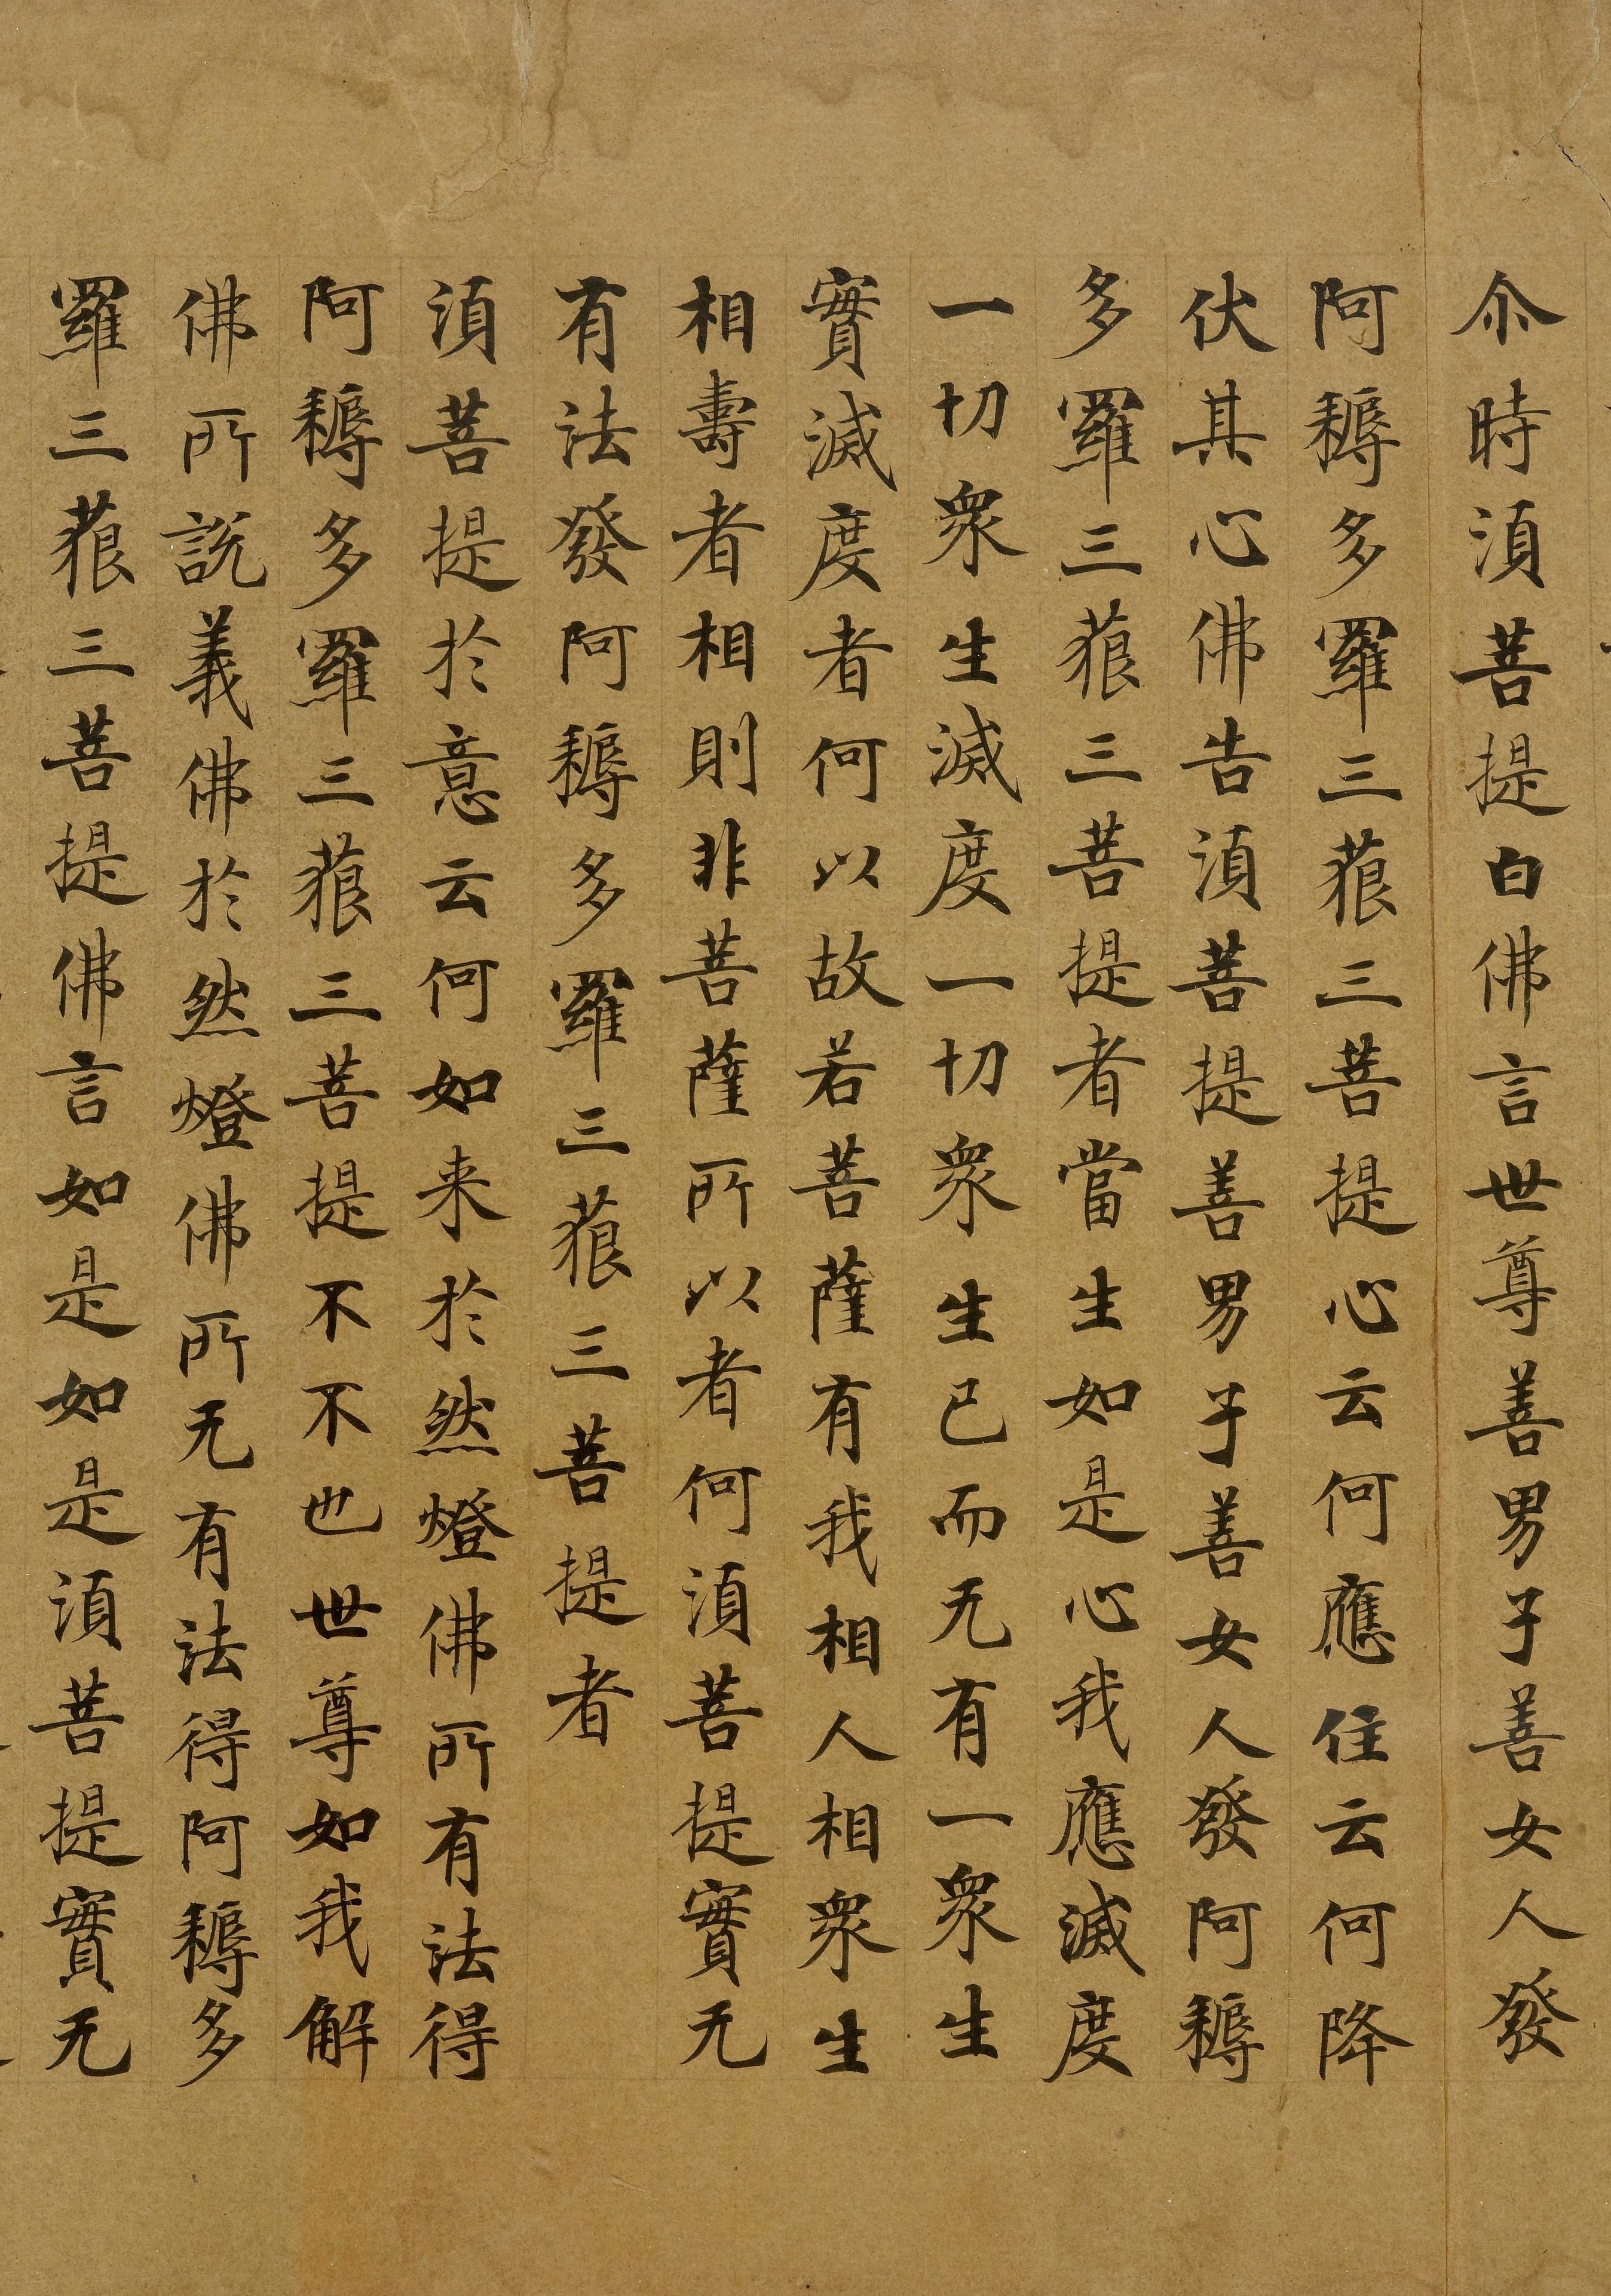 尒時湏菩提白佛言世尊善男子善女人發
阿耨多羅三藐三菩提心云何應住云何降
伏其心佛告湏菩提善男子善女人發阿耨
多羅三藐三菩提者當生如是心我應滅度
一切衆生滅度一切衆生已而无有一衆生
實滅度者何以故若菩薩有我相人相衆生
相壽者相則非菩薩所以者何湏菩提實无
有法發阿耨多羅三藐三菩提者
湏菩提於意云何如来於然燈佛所有法得
阿耨多羅三藐三菩提不不也世尊如我解
佛所説義佛於然燈佛所无有法得阿耨多
羅三藐三菩提佛言如是如是湏菩提實无